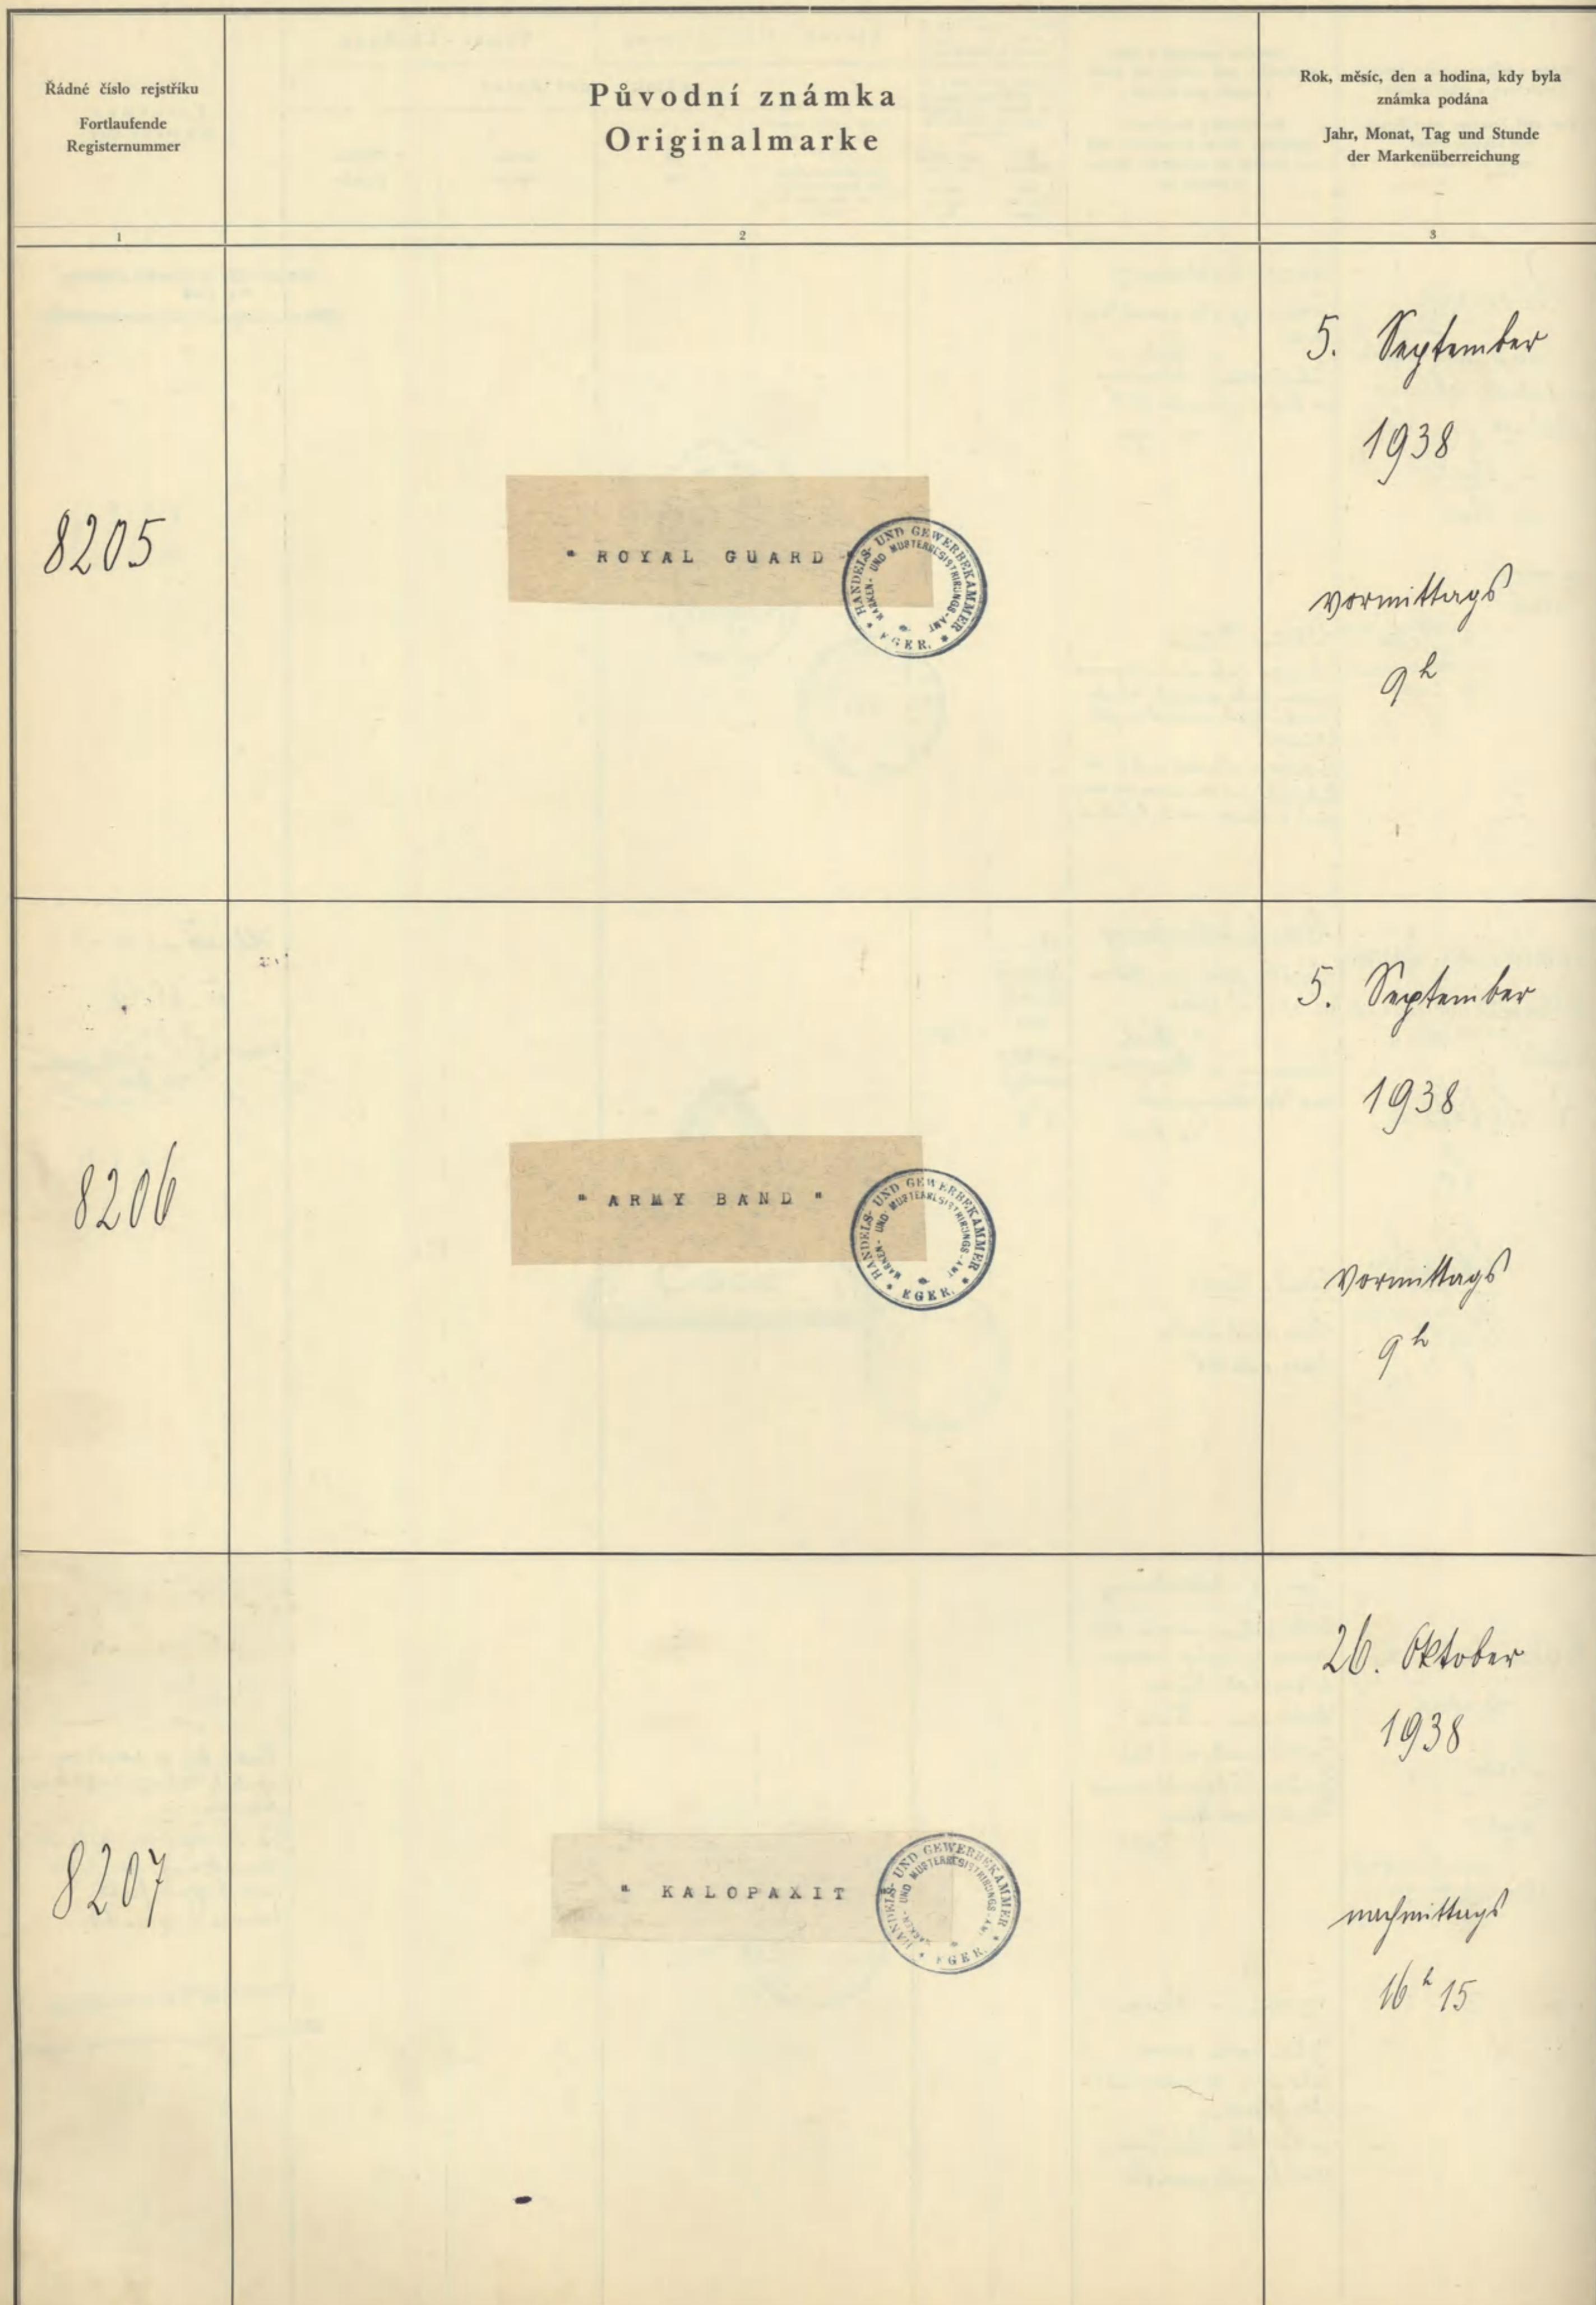 Řádné číslo rejstříku
Fortlaufende
Registernummer
Původní známka
Originalmarke
Rok, měsíc, den a hodina, kdy byla
známka podána
Jahr, Monat, Tag und Stunde
der Markenüberreichung
1
2
3
8205
" ROYAL GUARD "
HANDELS- UND GEWERBEKAMMER * EGER. *
MARKEN- UND MUSTERREGISTRIRUNGS-AMT
5. September
1938
vormittags
9 h
8206
" ARMY BAND "
HANDELS- UND GEWERBEKAMMER * EGER. *
MARKEN- UND MUSTERREGISTRIRUNGS-AMT
5. September
1938
vormittags
9 h
8207
" KALOPAXIT
HANDELS- UND GEWERBEKAMMER * EGER. *
MARKEN- UND MUSTERREGISTRIRUNGS-AMT
26. Oktober
1938
nachmittags
16 h 15